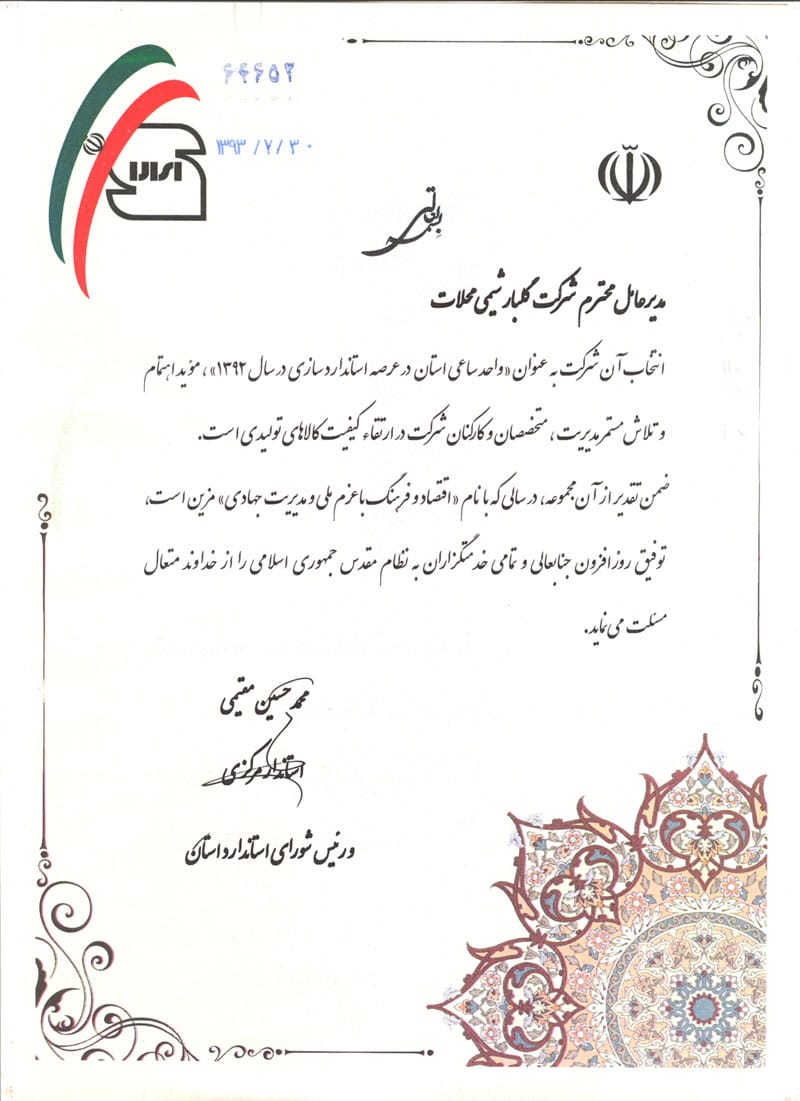 ۶۴۶۵۳
۱۳۹۳/۷/۳۰
بسمه تعالی
مدیرعامل محترم شرکت گلبار شیمی محلات
انتخاب آن شرکت به عنوان «واحد ساعی استان در عرصه استاندارد سازی در سال ۱۳۹۲»، مؤید اهتمام
و تلاش مستمر مدیریت، متخصصان و کارکنان شرکت در ارتقاء کیفیت کالاهای تولیدی است.
ضمن تقدیر از آن مجموعه، در سالی که با نام «اقتصاد و فرهنگ با عزم ملی و مدیریت جهادی» مزین است،
توفیق روزافزون جنابعالی و تمامی خدمتگزاران به نظام مقدس جمهوری اسلامی را از خداوند متعال
مسئلت می نماید.
محمد حسین مقیمی
استاندار مرکزی
و رئیس شورای استاندارد استان